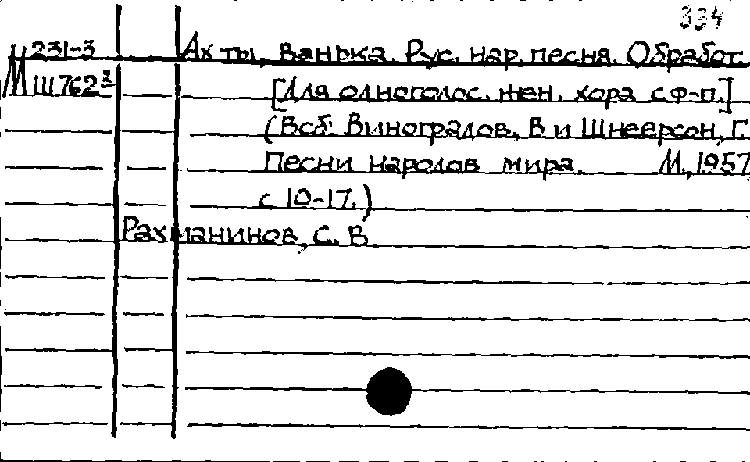 334
М 231-3 Ах ты, Ванька. Рус. нар. песня. Обработ.
Ш762³ [Для одноголос. жен. хора с ф-п.]
(В сб: Виноградов, В и Шнеерсон, Г.
Песни народов мира. М., 1957,
с 10-17.)
Рахманинов, С. В